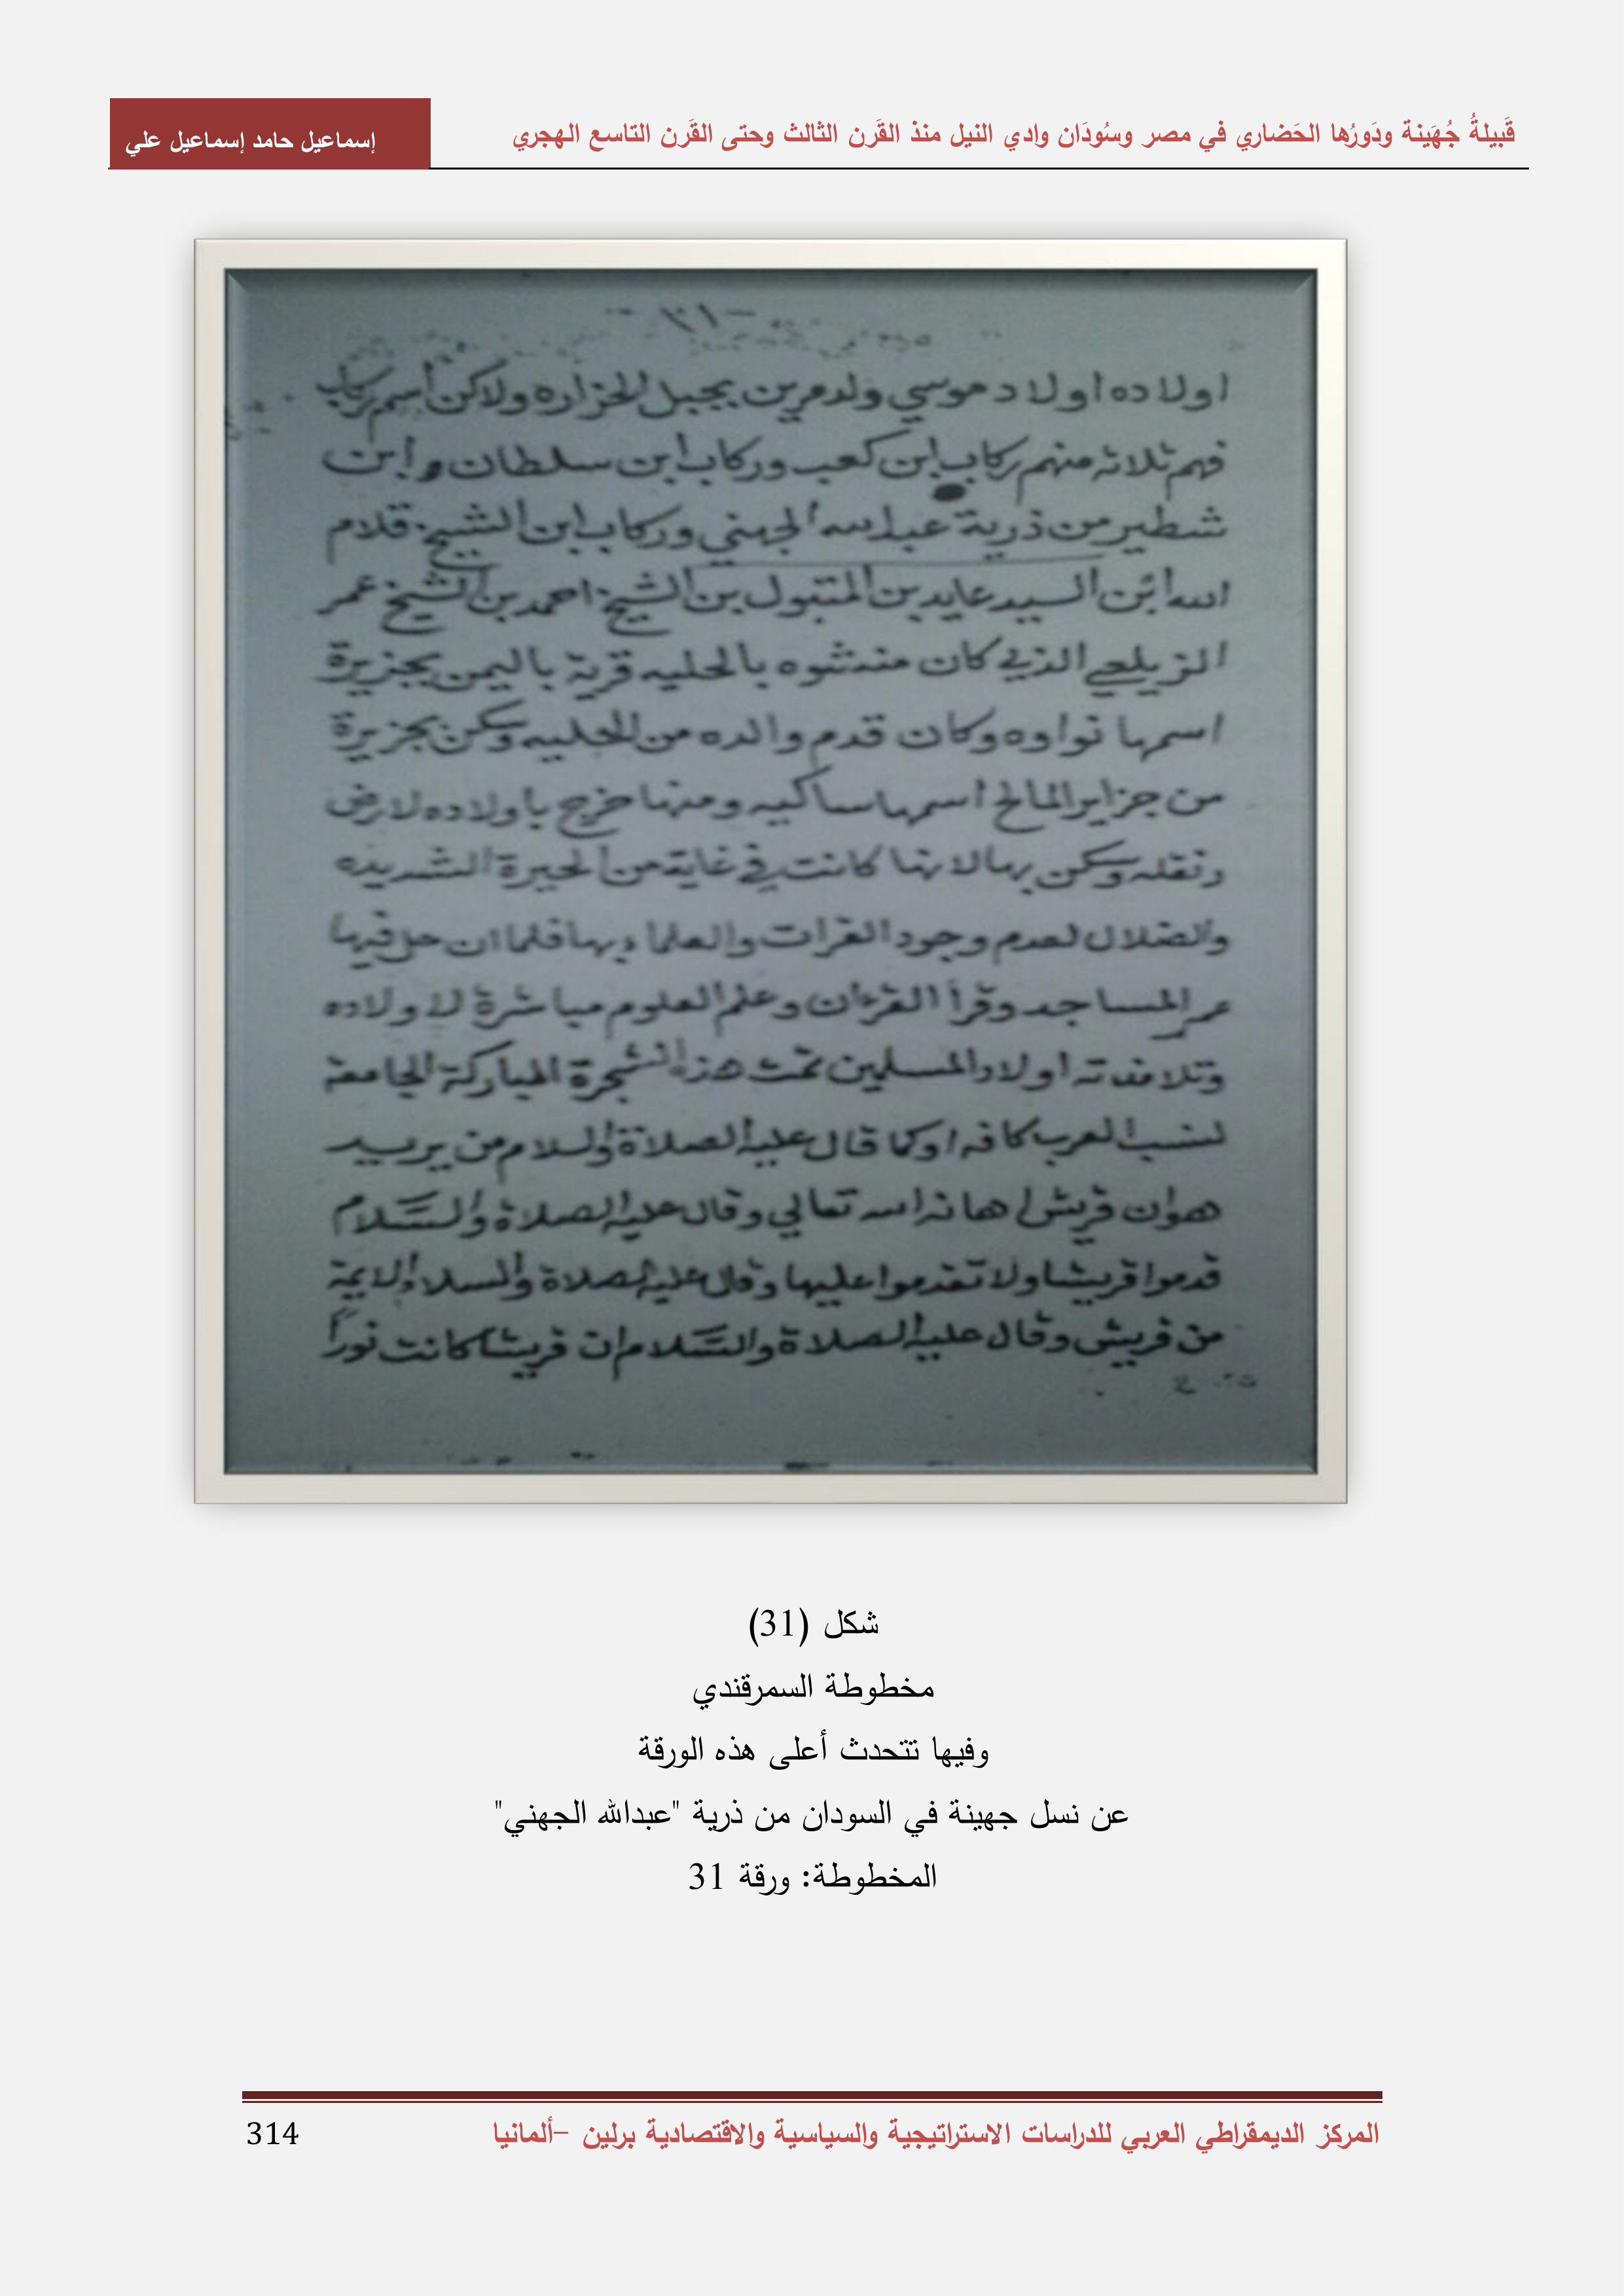 قَبيلةُ جُهَينة ودَورُها الحَضاري في مصر وسُودَان وادي النيل منذ القَرن الثالث وحتى القَرن التاسع الهجري
إسماعيل حامد إسماعيل علي
-٣١-
اولاده اولاد موسي ولد مرين بجبل الحزاره ولاكن اسم ركاب
فهم ثلاثه منهم ركاب ابن كعب وركاب ابن سلطان وابن
شطير من ذرية عبدالله الجهني وركاب ابن الشيخ غلام
الله ابن السيد عايد بن المقبول بن الشيخ احمد بن الشيخ عمر
الزيلعي الذي كان منشوه بالحليه قرية باليمن بجزيرة
اسمها نواوه وكان قدم والده من الحليه وسكن بجزيرة
من جزاير المالح اسمها سماكيه ومنها خرج باولاده لارض
دنقله وسكن بها لانها كانت في غاية من الحيرة الشديده
والضلال لعدم وجود القرات والعلما بها فلما ان حل فيها
عمر المساجد وقرأ القرءان وعلم العلوم مباشرة لاولاده
وتلامدته اولاد المسلمين تمت هذا الشجرة المباركة الجامعة
لنسب العرب كافه اوكما قال عليه الصلاة والسلام من يريد
هوان قريش اهانه الله تعالي وقال عليه الصلاة والسَّلام
قدموا قريشا ولا تقدموا عليها وقال عليه الصلاة والسلام الايمة
من قريش وقال عليه الصلاة والسَّلام ان قريشا كانت نوراً
شكل (31)
مخطوطة السمرقندي
وفيها تتحدث أعلى هذه الورقة
عن نسل جهينة في السودان من ذرية "عبدالله الجهني"
المخطوطة: ورقة 31
المركز الديمقراطي العربي للدراسات الاستراتيجية والسياسية والاقتصادية برلين –ألمانيا
314